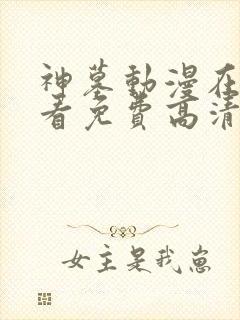 神墓動漫在
看免費高清
女主是我崽